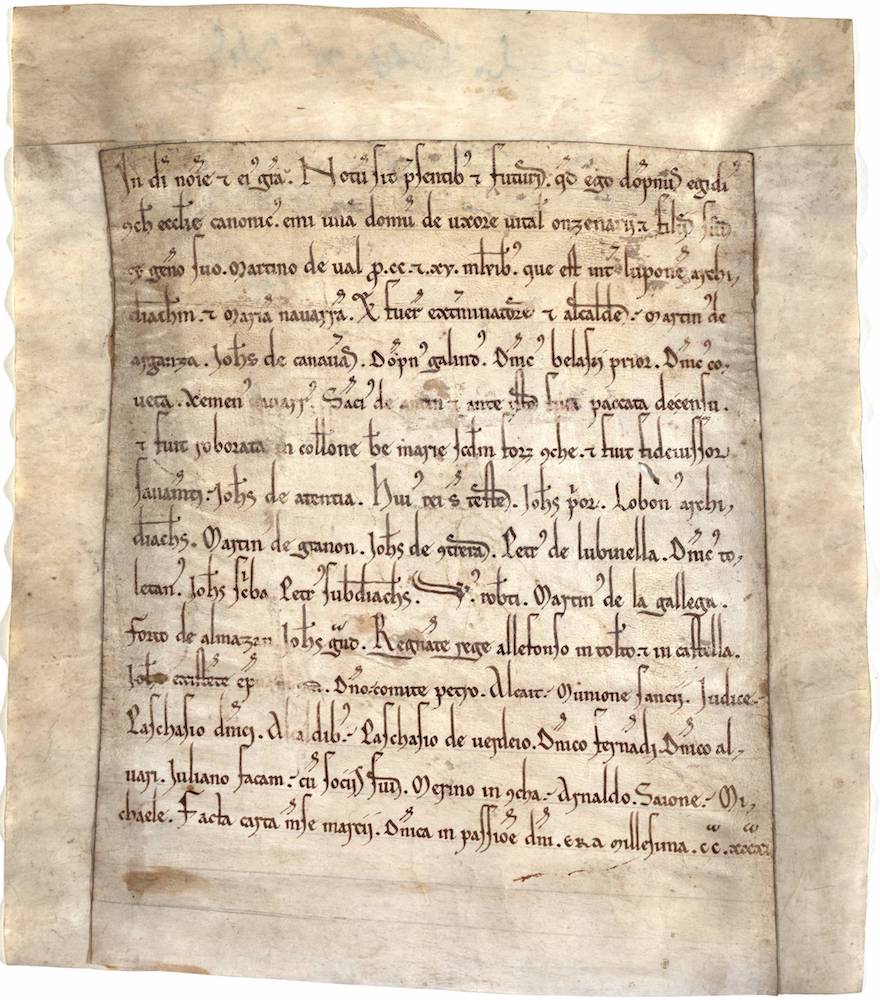 In di noie ⁊ ei gra. Notu sit psentib ⁊ futuris. qd ego dopnus egidi
9ch ecclie canonic. emi unā domū de uxore vital onzenarii ⁊ filiis suis
⁊ geno suo. Martino de val p. cc. ⁊. xv. mlrib. que est int lupone archi,
diachm. ⁊ Maria navarra. X fuer extiminatores ⁊ alcaldes. Martin de
arganza. Johs de canavas. Dopn galind. Dnic belasci prior. Dnic co,
veta. Xemen navarr. Sāci de ⁊ ante paccata decensu.
⁊ fuit roborata in collone be marie scdm forz 9che. ⁊ fuit fideiussor
Johs de atentia. Hui rei s testes. Johs por. Lobon archi,
diachs. Martin de granon. Johs de 9treras. Petr de lubinella. Dnic to,
letan. Johs scba Petr subdiachs. robti. Martin de la gallega.
forto de almazan Johs gud. Regnāte rege allefonso in tolto. ⁊ in castella.
Joh existēte ep. Dno comite petro. Alcait. Munione sancii. Judice.
Paschasio dnici. Alcaldib. Paschasio de verdeio. Dnico fernādi. Dnico al,
vari. Juliano sacam. cū sociis suis. Merino in 9cha. Arnaldo. Saione. Mi,
chaele. Facta carta mse marcii. Dnica in passiōe dni. ERA Millesima. cc. xxxxi